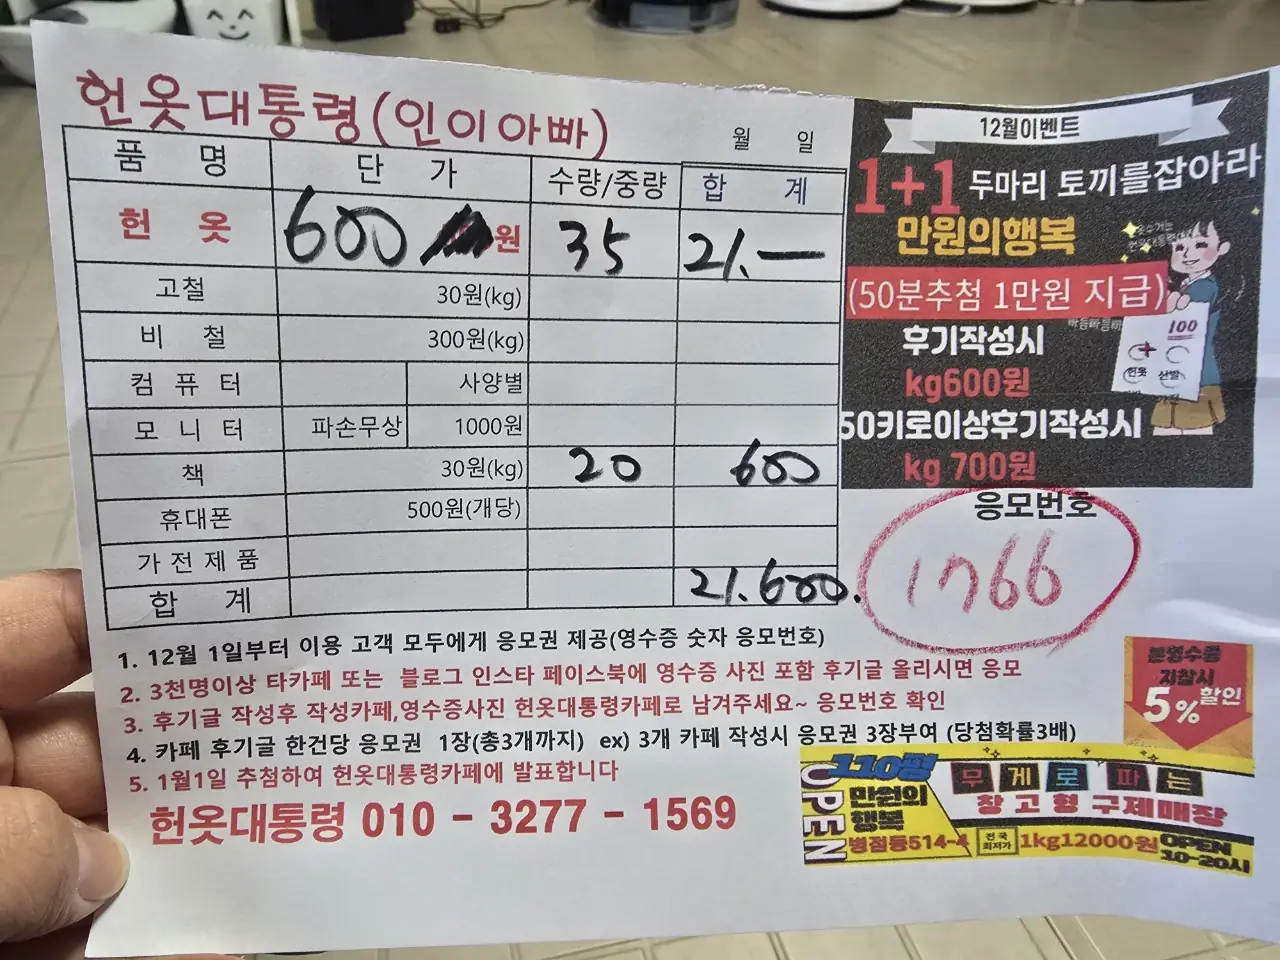 헌옷대통령(인이아빠)
월 일
품 명 단 가 수량/중량 합 계
헌 옷 600 원 35 21.—
고철 30원(kg)
비 철 300원(kg)
컴 퓨 터 사양별
모 니 터 파손무상 1000원
책 30원(kg) 20 600
휴대폰 500원(개당)
가전제품
합 계 21.600.
1. 12월 1일부터 이용 고객 모두에게 응모권 제공(영수증 숫자 응모번호)
2. 3천명이상 타카페 또는 블로그 인스타 페이스북에 영수증 사진 포함 후기글 올리시면 응모
3. 후기글 작성후 작성카페,영수증사진 헌옷대통령카페로 남겨주세요~ 응모번호 확인
4. 카페 후기글 한건당 응모권 1장(총3개까지) ex) 3개 카페 작성시 응모권 3장부여 (당첨확률3배)
5. 1월1일 추첨하여 헌옷대통령카페에 발표합니다
헌옷대통령 010 - 3277 - 1569
12월이벤트
1+1 두마리 토끼를잡아라
만원의행복
(50분추첨 1만원 지급)
후기작성시
kg600원
50키로이상후기작성시
kg 700원
100
헌옷 신발
응모번호
1766
본영수증
지참시
5% 할인
OPEN
110평
만원의
행복
병점동514-4
무게로파는
창고형 구제매장
전국
최저가
1kg12000원
OPEN
10-20시